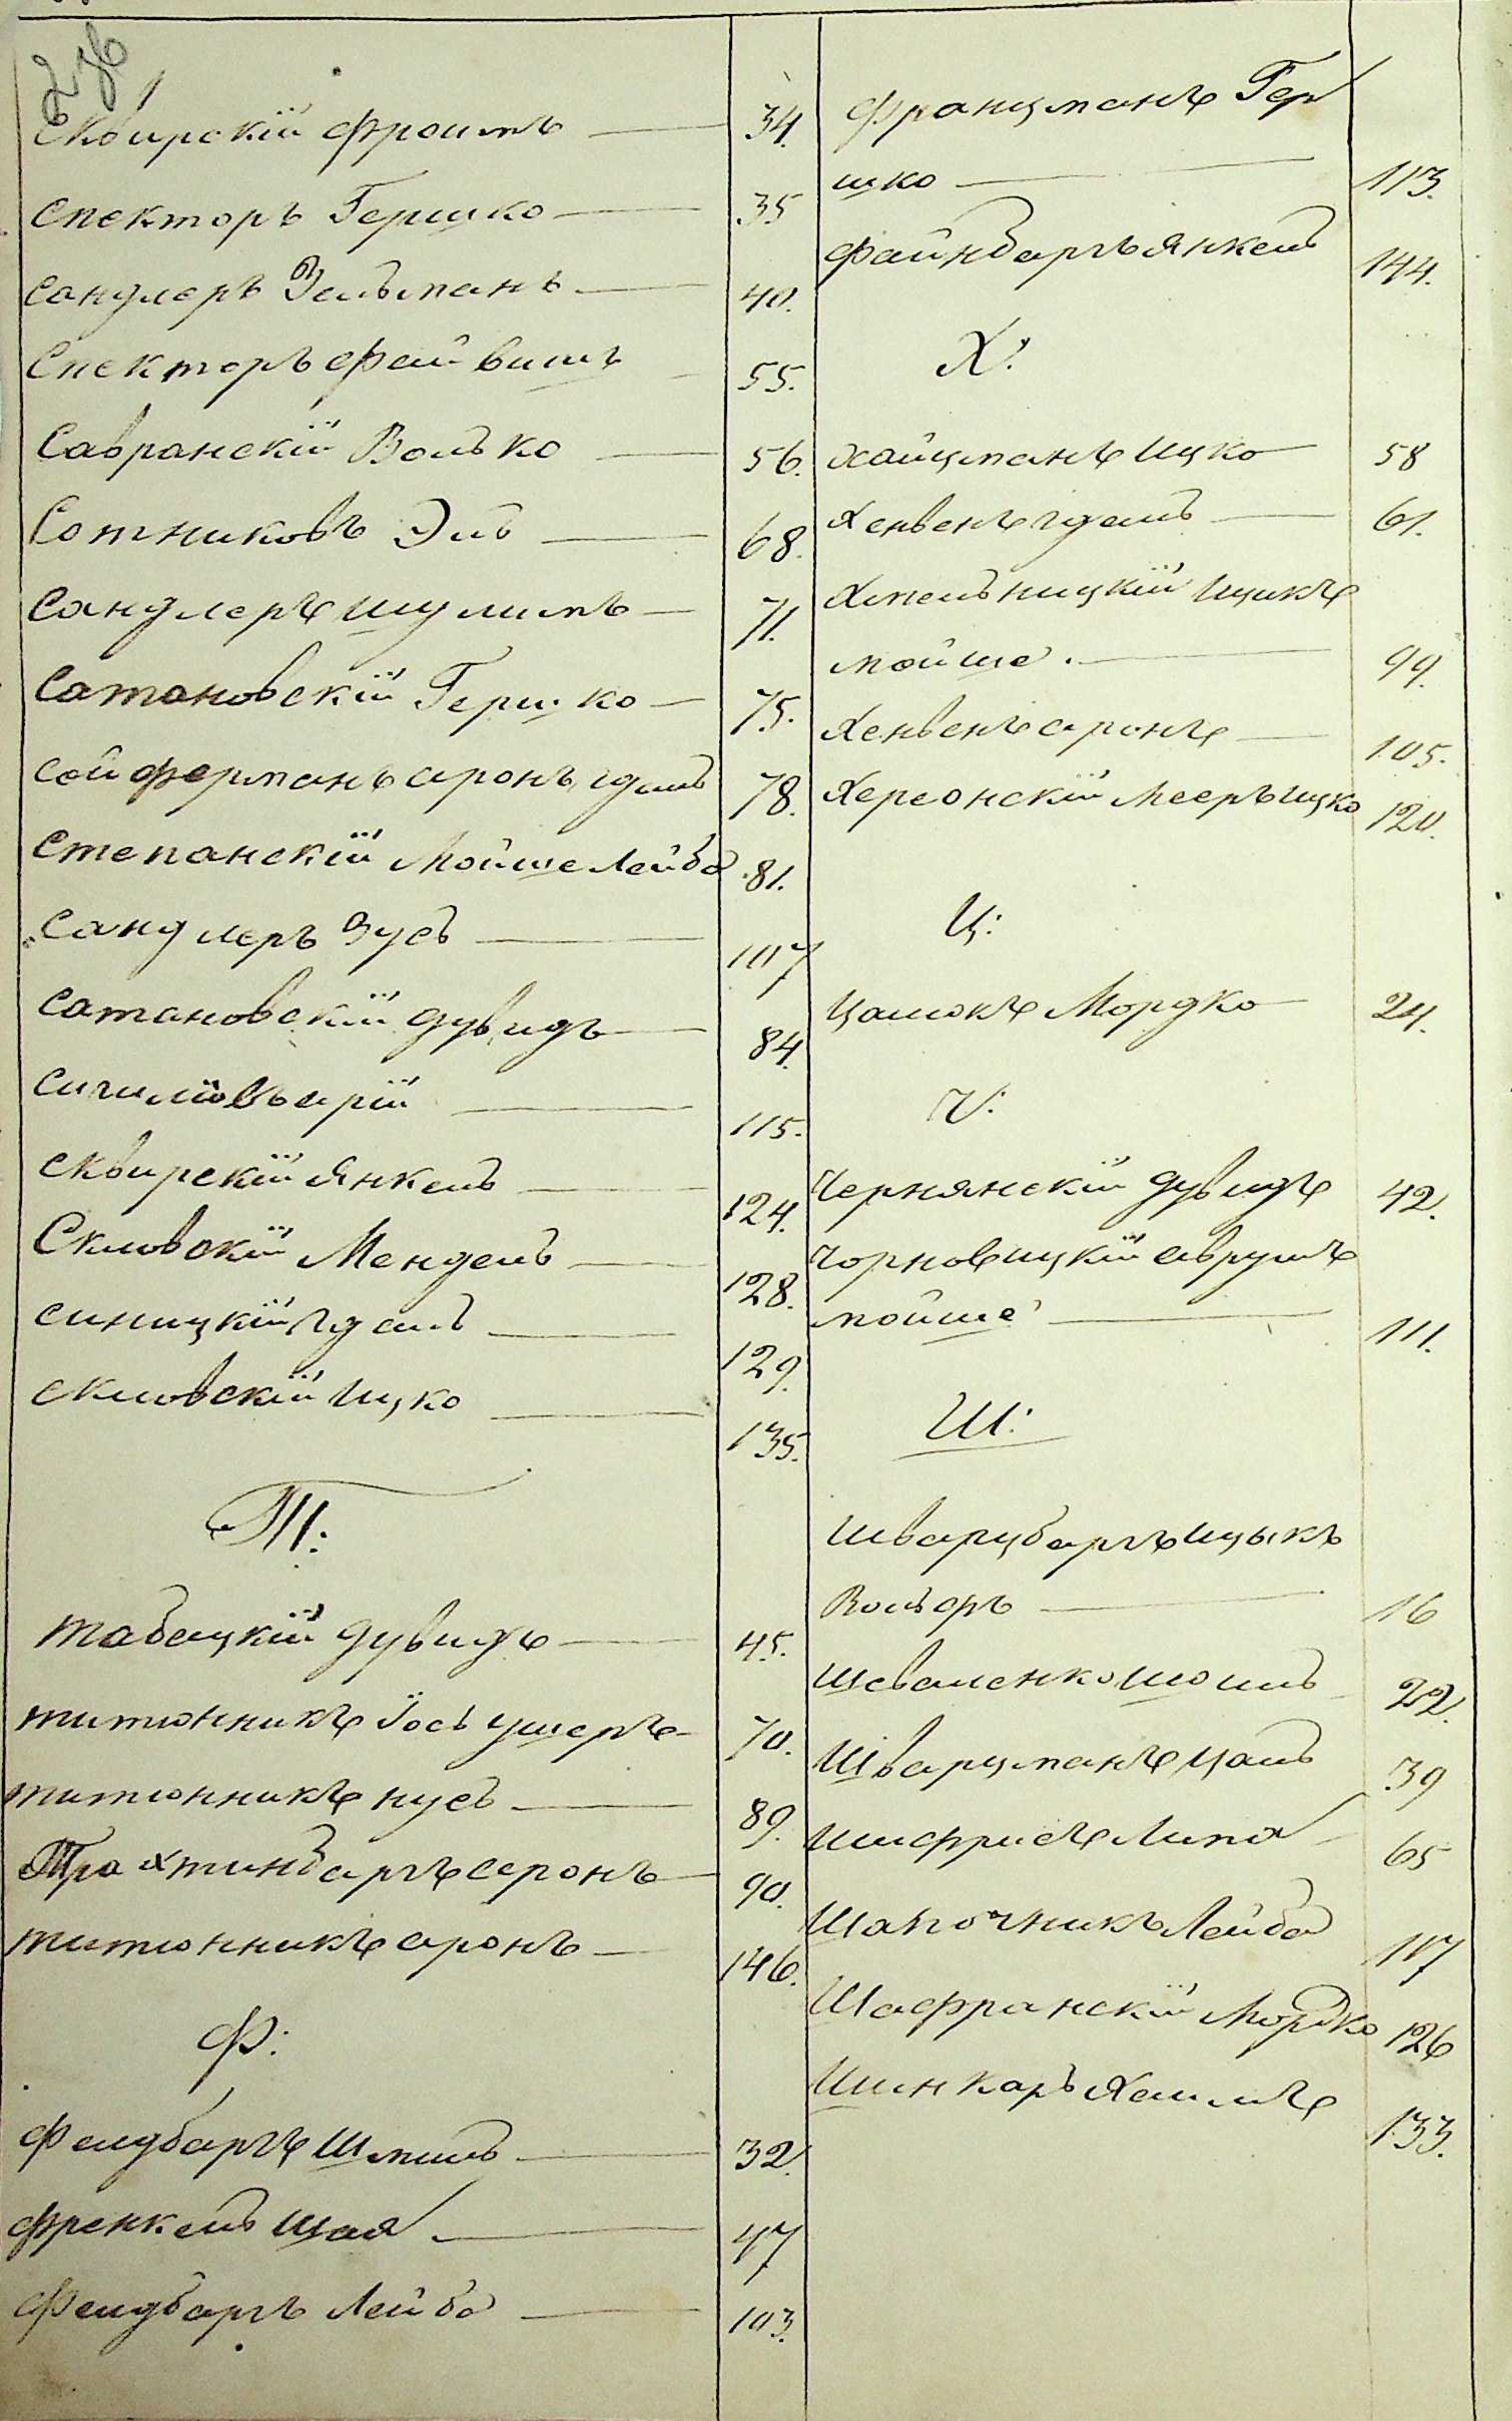 236
Сквирскій Фроимъ — 34.
Спекторъ Гершко — 35
Сандлеръ Зельманъ — 40.
Спекторъ Файвишъ 55.
Савранскій Волько — 56.
Сотниковъ Эль — 68.
Сандлеръ Шулимъ — 71.
Сатановскій Гершко — 75.
Сойферманъ Аронъ Гдаль 78.
Степанскій Мойше Лейба 81.
Сандлеръ Зусь — 107
Сатановскій Дувидъ — 84.
Арій — 115.
Сквирскій Янкель — 124.
Скловскій Мендель — 128.
Синицкій Гдаль — 129.
Скловскій Ицко — 135.
Т:
Табацкій Дувидъ — 45.
Титюнникъ Іось Ушеръ — 70.
Титюнникъ Нусь — 89.
Трахтинбаргъ Аронъ — 90.
Титюнникъ Аронъ — 146.
Ф:
Фелдбаргъ Шмиль — 32.
Френкель Шая — 47
Фелдбаргъ Лейба — 103.
Францманъ Гер
шко — 113.
Файнбаргъ Янкель 144.
Х:
Хайцманъ Ицко — 58
Хенвенъ Гдаль — 61.
Хмельницкій Ицикъ
Мойше. — 99.
Хенвенъ Аронъ — 105.
Херсонскій Мееръ Ицко 120.
Ц:
Цалюкъ Мордко — 24.
Ч:
Чернянскій Дувидъ 42.
Чорновицкій Аврумъ
Мойше — 111.
Ш:
Шварцбаргъ Ицыкъ
Вольфъ — 16
Шеваленко Шоиль 22.
Шварцманъ Цаль 39
Шифрисъ Липа 65
Шапочникъ Лейба 117
Шафранскій Мордко 126
Шинкаръ Хаимъ 133.